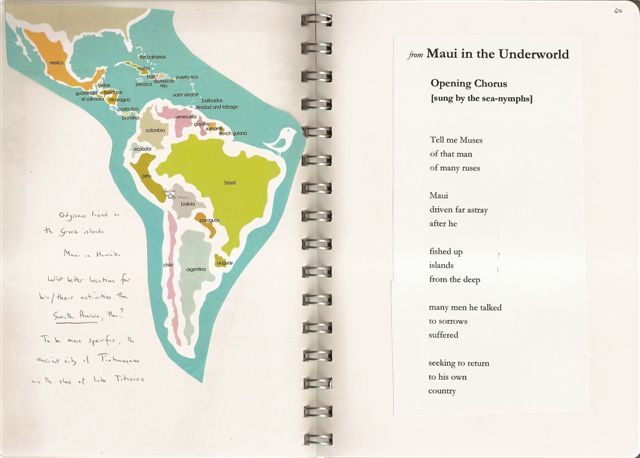 mexico
the bahamas
cuba
haiti
dominican
rep.
puerto rico
jamaica
belize
guatemala
honduras
el salvador
nicaragua
saint vincent
barbados
trinidad and tobago
costa rica
panama
venezuela
guyana
suriname
french guiana
colombia
ecuador
peru
brazil
bolivia
paraguay
chile
argentina
uruguay
Odysseus lived in
the Greek islands
Maui in Hawaiki.
What better location for
his/their activities than
South America, then?
To be more specific, the
ancient city of Tiahuanaco
on the shore of Lake Titicaca.
60
from Maui in the Underworld
Opening Chorus
[sung by the sea-nymphs]
Tell me Muses
of that man
of many ruses
Maui
driven far astray
after he
fished up
islands
from the deep
many men he talked
to sorrows
suffered
seeking to return
to his own
country